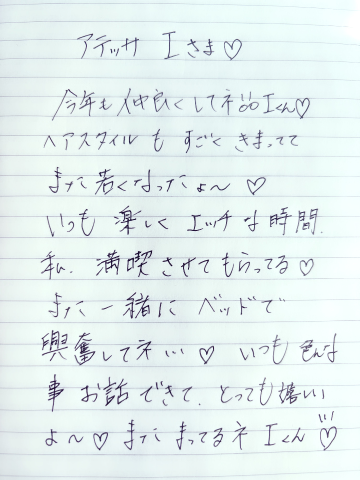 アテッサ Iさま♡
今年も仲良くしてネ Iくん♡
ヘアスタイルも すごく きまってて
また若くなったよ～ ♡
いつも 楽しく エッチな時間、
私、満喫させてもらってる♡
また一緒に ベッドで
興奮してネ…♡ いつも 色んな
事 お話できて、とっても嬉しい
よ～♡ また まってるネ Iくん♡